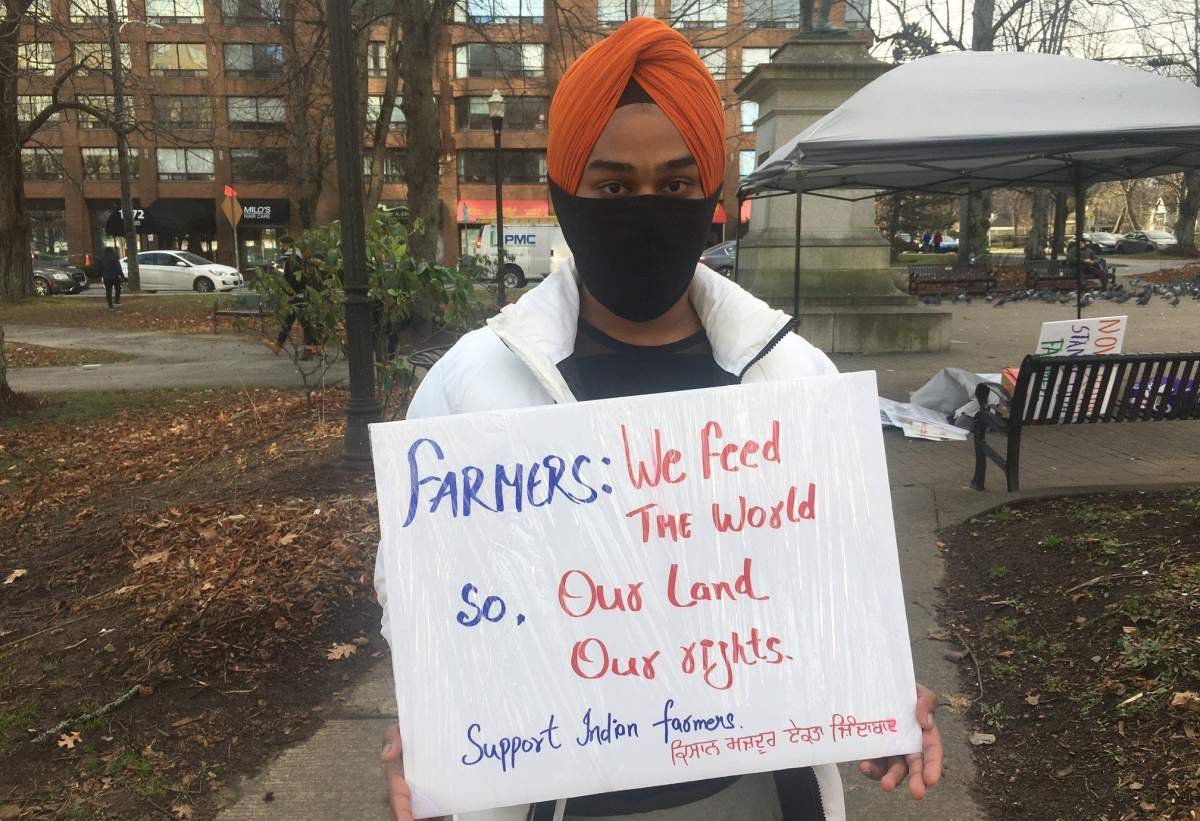 1472
MILO'S
HAIR CARE
PMC
FARMERS: We Feed
THE World
So, Our Land
Our rights.
Support Indian farmers.
ਕਿਸਾਨ ਮਜ਼ਦੂਰ ਏਕਤਾ ਜ਼ਿੰਦਾਬਾਦ
NOW
STAN
FA